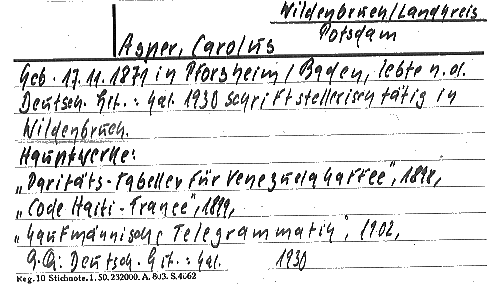 Wildenbruch/Landkreis
Potsdam
Asper, Carolus
Geb. 17.11.1871 in Pforzheim/Baden, lebte n.d.
Deutsch. Lit.: Kal. 1930 schriftstellerisch tätig in
Wildenbruch.
Hauptwerke:
„Paritäts-Tabellen für Venezuelakaffee", 1898,
„Code Haiti-France", 1899,
„Kaufmännische Telegrammatik", 1902,
Deutsch. Lit.: Kal. 1930
Keg. 10 Stichnote. 1. 50. 232000. A. 803. S. 4662